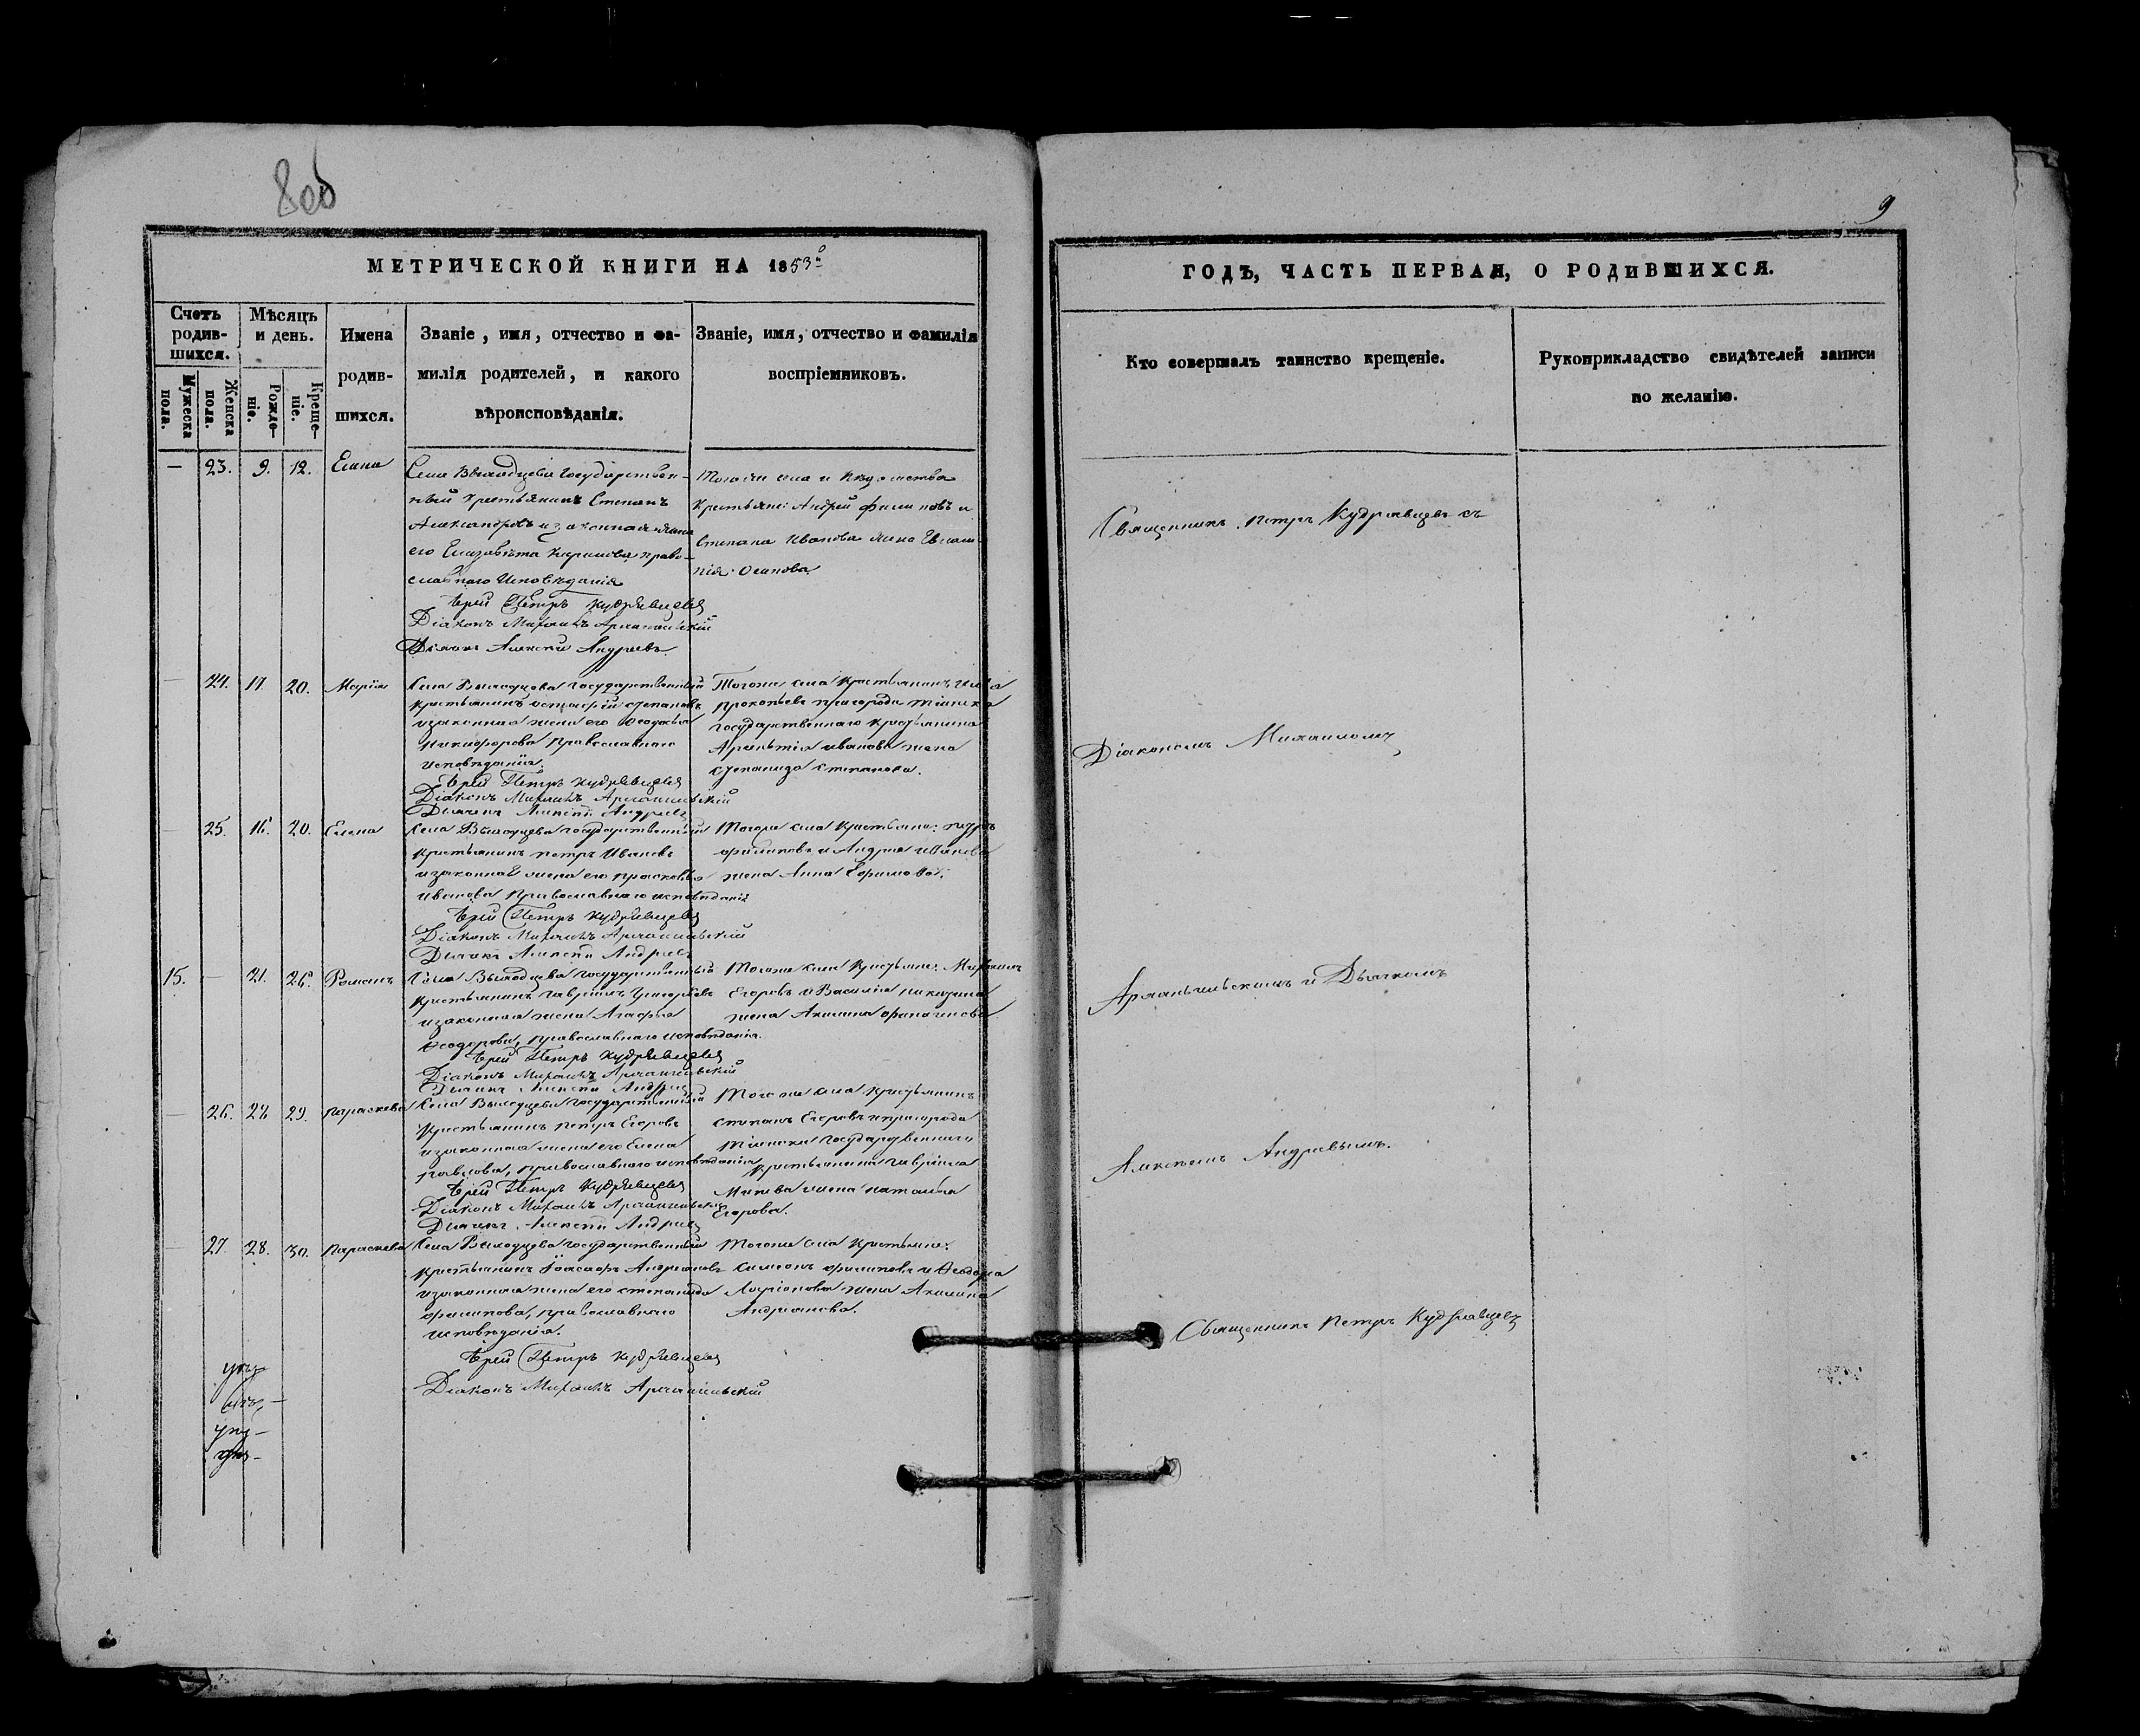 8 об
9
МЕТРИЧЕСКОЙ КНИГИ НА 1853й
ГОДЪ, ЧАСТЬ ПЕРВАЯ, О РОДИВШИХСЯ.
Счетъ родив-шихся.
Мужеска пола.
Женска пола.
Мѣсяцъ и день.
Рожде-ніе.
Креще-ніе.
Имена
родив-
шихся.
Званіе, имя, отчество и фа-
милія родителей, и какого
вѣроисповѣданія.
Званіе, имя, отчество и фамилія
воспріемниковъ.
Кто совершалъ таинство крещеніе.
Рукоприкладство свидѣтелей записи
по желанію.
— 23. 9. 12. Елена
Села Выходцева Государствен-
ный Крестьянинъ Степанъ
Александровъ и законная жена
его Елизавѣта Кирилова право-
славнаго Исповѣданія
Іерей Петръ Кудрявцевъ
Діаконъ Михаилъ Архангельскій
Дьячекъ Алексѣй Андреевъ
Того же села и
Крестьяне: Андрей Филиповъ и
Степана Иванова жена
Осипова
Священникъ Петръ Кудрявцевъ съ
— 24. 17. 20. Марія
Села Выходцева Государственный
Крестьянинъ Степановъ
и законная жена его Ѳеодосья
Никифорова Православнаго
исповѣданія.
Іерей Петръ Кудрявцевъ
Діаконъ Михаилъ Архангельскій
Дьячекъ Алексѣй Андреевъ
Того же села Крестьянинъ
Прокопьевъ пригорода Тіинска
Государственнаго Крестьянина
Иванова жена
Степанида Степанова.
Діакономъ Михаиломъ
— 25. 16. 20. Елена
Села Выходцева Государственный
Крестьянинъ Петръ Ивановъ
и законная жена его Прасковья
Иванова Православнаго исповѣданія
Іерей Петръ Кудрявцевъ
Діаконъ Михаилъ Архангельскій
Дьячекъ Алексѣй Андреевъ
Того же села Крестьяне: Петръ
Филиповъ и Андрея Иванова
жена Анна Ефимова.
15. — 21. 26. Романъ
Села Выходцева Государственный
Крестьянинъ Гаврилъ Григорьевъ
и законная жена Агафья
Ѳеодорова, православнаго исповѣданія.
Іерей Петръ Кудрявцевъ
Діаконъ Михаилъ Архангельскій
Дьячекъ Алексѣй Андреевъ
Того же села Крестьяне:
Егоровъ и Василія Никитина
жена Акилина
Архангельскимъ и Дьячкомъ
— 26. 28. 29. Параскева
Села Выходцева Государственный
Крестьянинъ Петръ Егоровъ
и законная жена его Елена
Павлова, православнаго исповѣданія
Іерей Петръ Кудрявцевъ
Діаконъ Михаилъ Архангельскій
Дьячекъ Алексѣй Андреевъ
Того же села Крестьянинъ
Степанъ Егоровъ и пригорода
Тіинска Государственнаго
Крестьянина Гавріила
жена Наталья
Егорова.
Алексѣемъ Андреевымъ.
— 27. 28. 30. Параскева
Села Выходцева Государственный
Крестьянинъ Іоасафъ Андреяновъ
и законная жена его Степанида
Филипова, православнаго
исповѣданія.
Іерей Петръ Кудрявцевъ
Діаконъ Михаилъ Архангельскій
Того же села Крестьяне:
Симеонъ Филиповъ и Ѳеодора
Ларіонова жена Акилина
Андреянова.
Священникъ Петръ Кудрявцевъ